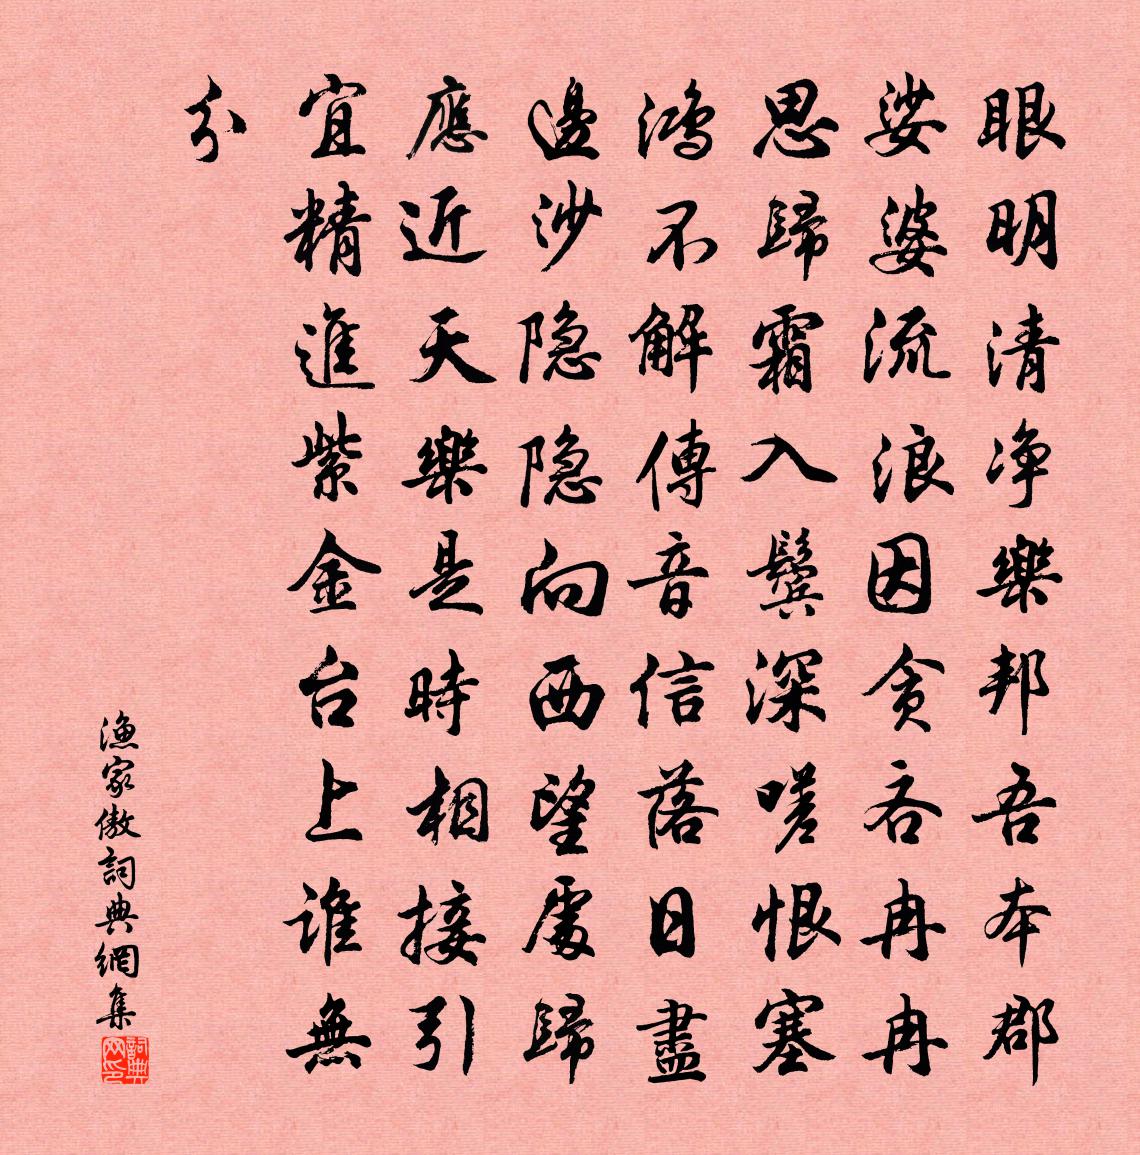 眼明清净樂邦吾本郡
娑婆流浪因贪吝冉冉
思歸霜入鬓深嗟恨塞
鸿不解傳音信落日盡
邊沙隐隐向西望處歸
應近天樂是時相接引
宜精進紫金台上誰無
分
渔家傲詞典網集